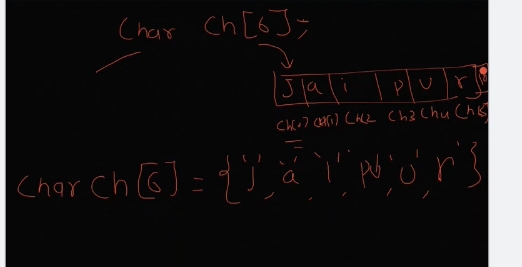 Char Ch[6];
J a i p u r
Ch[0] Ch[1] Ch[2 Ch3 Ch4 Ch[5]
Char Ch[6] = {'j', 'a', 'i', 'p', 'u', 'r'}